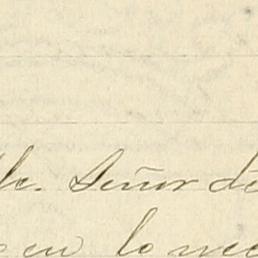 le. Señor de
en lo nec